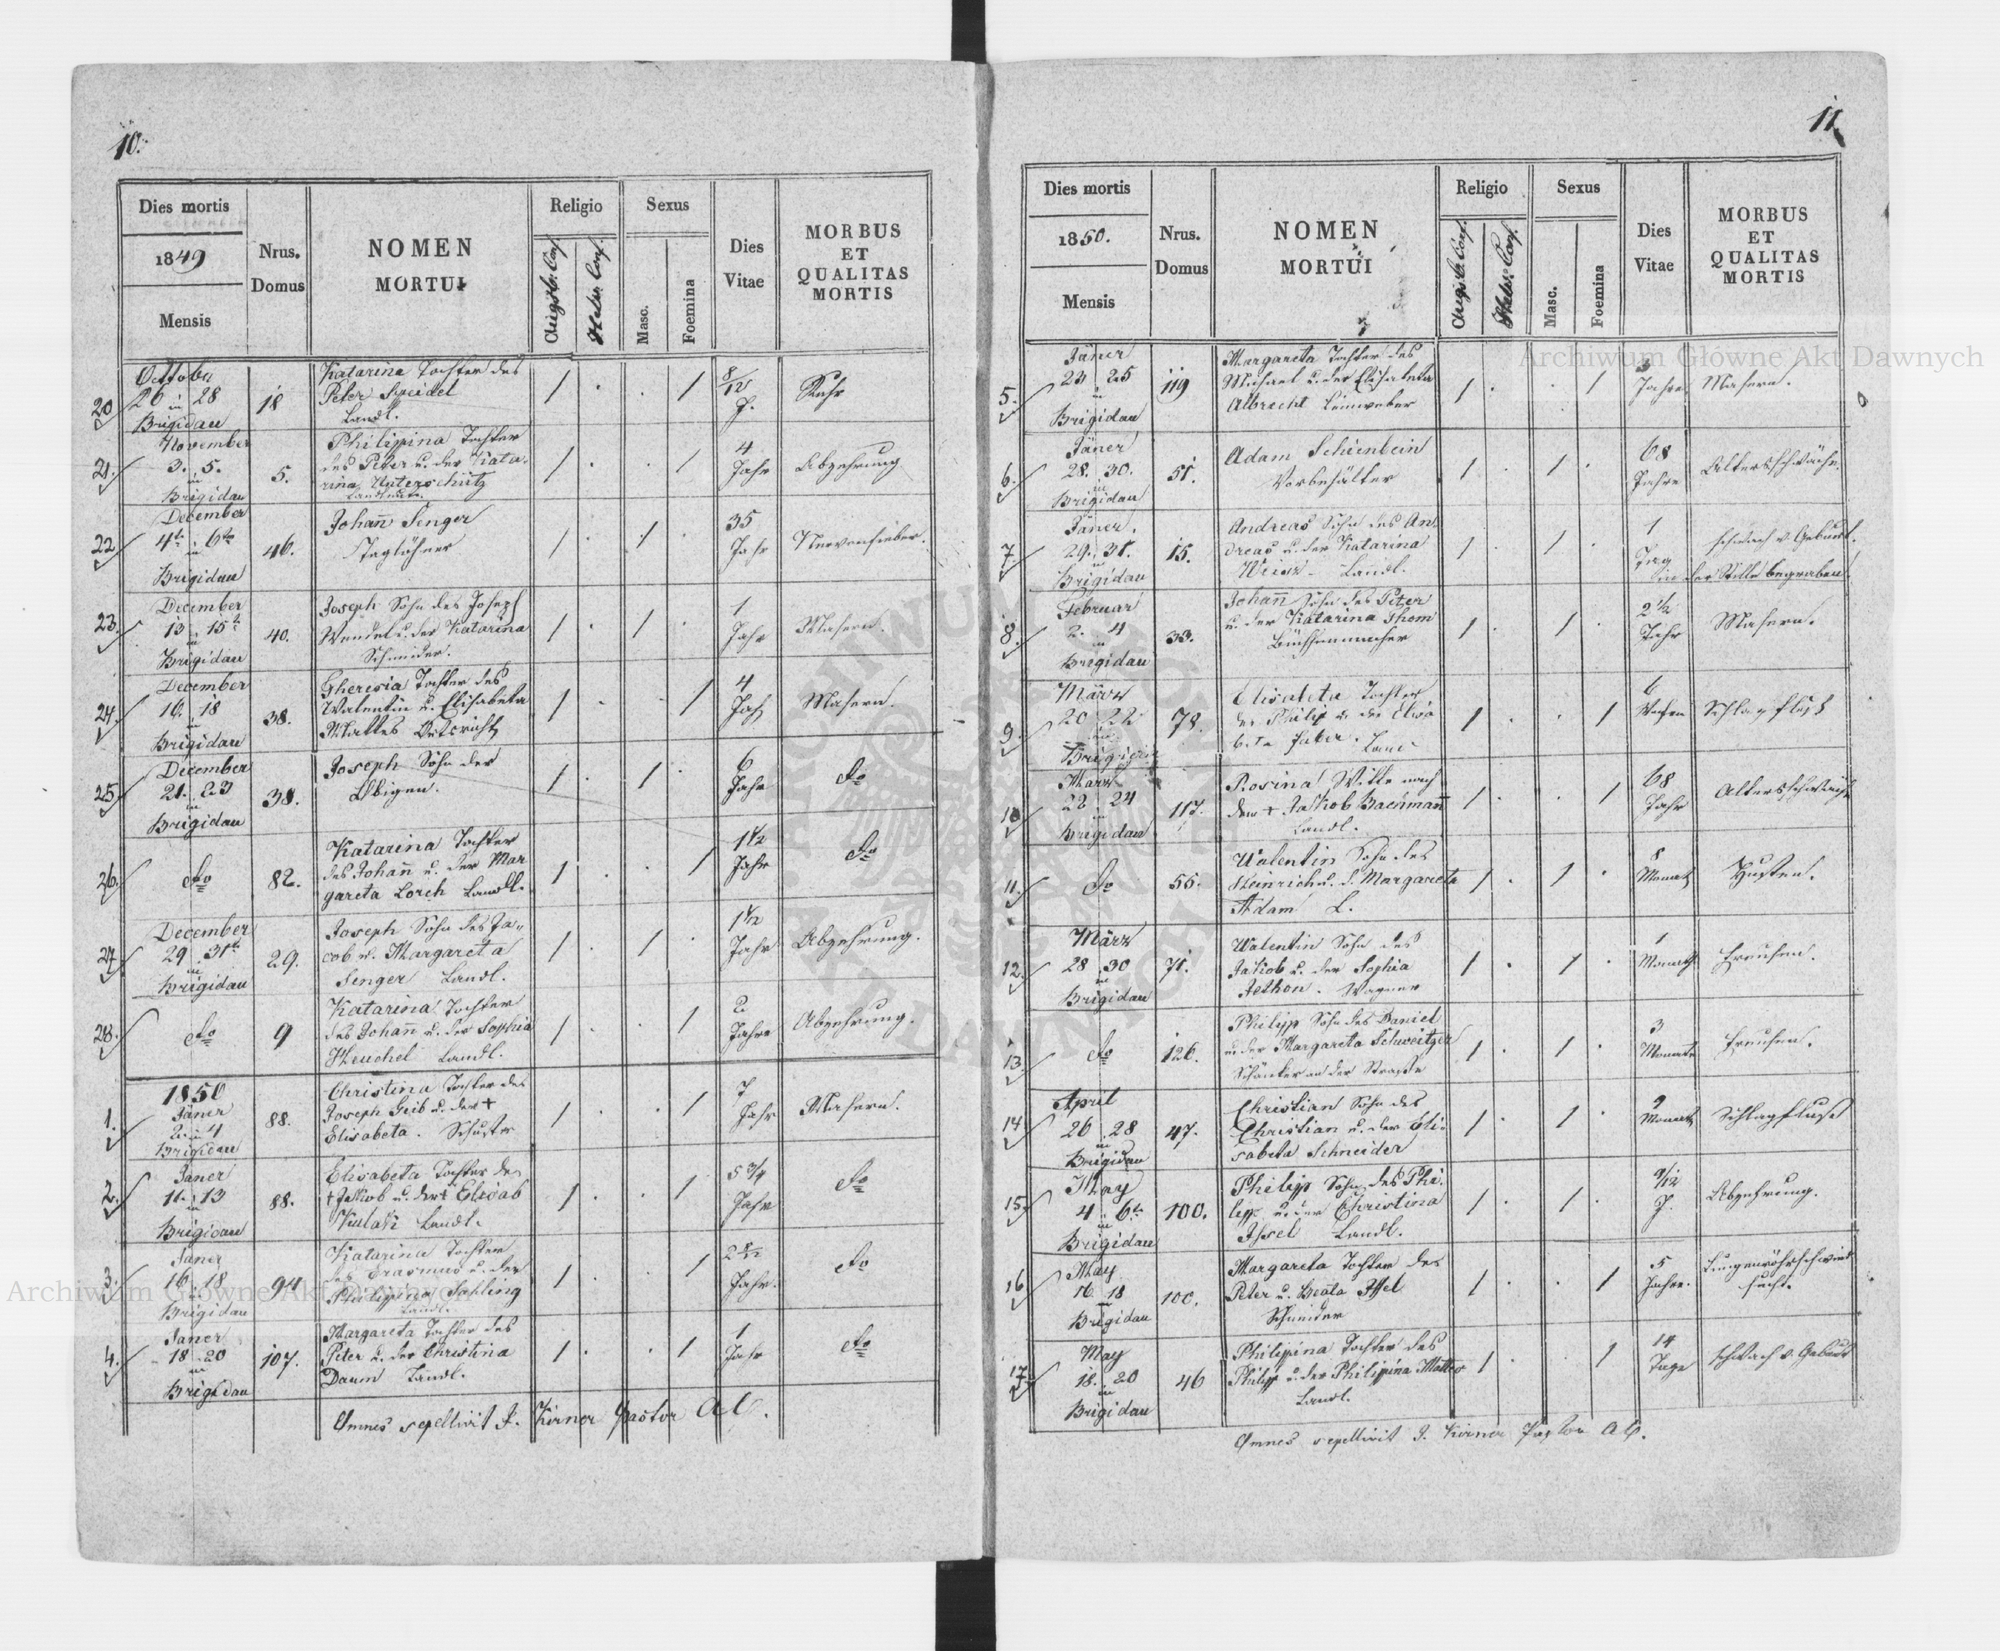 10.
Dies mortis
1849
Mensis
Nrus.
Domus
NOMEN
MORTUI
Religio
Augsb. Conf.
Helv. Conf.
Sexus
Masc.
Foemina
Dies
Vitae
MORBUS
ET
QUALITAS
MORTIS
20
October
26 28
in
Brigidau
18
Katarina Tochter des
Peter Speidel
Landl.
1 . . 1
8/12
J.
Ruhr
21.
November
3. 5.
in
Brigidau
5.
Philippina Tochter
des Peter u. der Kata-
rina Unterschütz
Landmann
1 . . 1
4
Jahr
Abzehrung
22
December
4te 6te
in
Brigidau
46.
Johan̄ Senger
Taglöhner
1 . 1 .
35
Jahr
Nervenfieber.
23.
December
13 15t
in
Brigidau
40.
Joseph Sohn des Joseph
Wendel u. der Katarina
Schneider.
1 . 1 .
1
Jahr
Masern.
24.
December
16. 18
in
Brigidau
38.
Theresia Tochter des
Valentin u. Elisabeta
Mattes Ortsricht
1 . . 1
4
Jah
Masern.
25
December
21. 23
in
Brigidau
38.
Joseph Sohn der
Obigen.
1 . 1 .
6
Jahr
do
26.
do
82.
Katarina Tochter
des Johan̄ u. der Mar
gareta Lorch Landl.
1 . . 1
1 1/2
Jahr
do
27.
December
29 31t
in
Brigidau
29.
Joseph Sohn des Ja-
cob u. Margareta
Senger Landl.
1 . 1 .
1 1/2
Jahr
Abzehrung.
28.
do
9
Katarina Tochter
des Johan̄ u. der Sophia
Heuchel Landl.
1 . . 1
2
Jahre
Abzehrung.
1.
1850
Jäner
2. 4
in
Brigidau
88.
Christina Tochter des
Joseph Geib u. der +
Elisabeta. Schuster
1 . . 1
7
Jahr
Masern.
2.
Janer
11. 13
in
Brigidau
88.
Elisabeta Tochter des
+ Jakob u. der + Elisab
Landl.
1 . . 1
5 3/4
Jahr
do
3.
Janer
16 18
in
Brigidau
94
Katarina Tochter
des Erasmus u. der
Philippina
Landl.
1 . . 1
2 8/12
Jahr.
do
4.
Janer
18 20
in
Brigidau
107.
Margareta Tochter des
Peter u. der Christina
Daum Landl.
1 . . 1
1
Jahr
do
Omnes sepelivit J. Körner Pastor A.C.
11.
Dies mortis
1850.
Mensis
Nrus.
Domus
NOMEN
MORTUI
Religio
Augsb. Conf.
Helv. Conf.
Sexus
Masc.
Foemina
Dies
Vitae
MORBUS
ET
QUALITAS
MORTIS
5.
Jäner
23 25
in
Brigidau
119
Margareta Tochter des
Michael u. der Elisabeta
Albrecht Leinweber
1 . . 1
3
Jahre
Masern.
6.
Jäner
28. 30.
in
Brigidau
51.
Adam Scheinbein
Vorbehälter
1 . 1 .
68
Jahre
Altersschwäche
7.
Jäner.
29. 31.
in
Brigidau
15.
Andreas Sohn des An
dreas u. der Katarina
Landl.
1 . 1 .
1
Tag
schwach v. Geburt.
in der Stille begraben
8.
Februar
2. 4
in
Brigidau
33.
Johan̄ Sohn des Peter
u. der Katarina Thom
Büchsenmacher
1 . 1 .
2 1/2
Jahr
Masern.
9.
März
20 22
in
78.
Elisabeta Tochter
des Philip u. der Elisa
beta
1 . . 1
6
Wochen
Schlagfluß
10
März
22 24
in
Brigidau
117.
Rosina Witwe nach
dem + Jakob Bachman̄
Landl.
1 . . 1
68
Jahr
Altersschwäche
11.
do
55.
Valentin Sohn des
Heinrich u. d. Margareta
Adam L.
1 . 1 .
8
Monat
Husten.
12.
März
28 30
in
Brigidau
71.
Valentin Sohn des
Jakob u. der Sophia
Jethon. Wagner
1 . 1 .
1
Monath
Freisen.
13
do
126.
Philipp Sohn des Daniel
u. der Margareta Schweitzer
Schänker an der Strasse
1 . 1 .
3
Monate
Freisen.
14
April
26 28
in
Brigidau
47.
Christian Sohn des
Christian u. der Eli-
sabeta Schneider
1 . 1 .
9
Monat
Schlagfluss
15.
May
4 6t
in
Brigidau
100.
Philipp Sohn des Phi-
lipp u. der Christina
Issel Landl.
1 . 1 .
9/12
J.
Abzehrung.
16
May
16 18
in
Brigidau
100.
Margareta Tochter des
Peter u. Beata Issel
Schneider
1 . . 1
5
Jahre.
Lungenröhrschwind
sucht.
17.
May
18. 20
in
Brigidau
46
Philippina Tochter des
Philipp u. der Philippina Mattes
Landl.
1 . . 1
14
Tage
schwach v. Geburt
Omnes sepelivit J. Körner Pastor A.C.
Archiwum Główne Akt Dawnych
Archiwum Główne Akt Dawnych